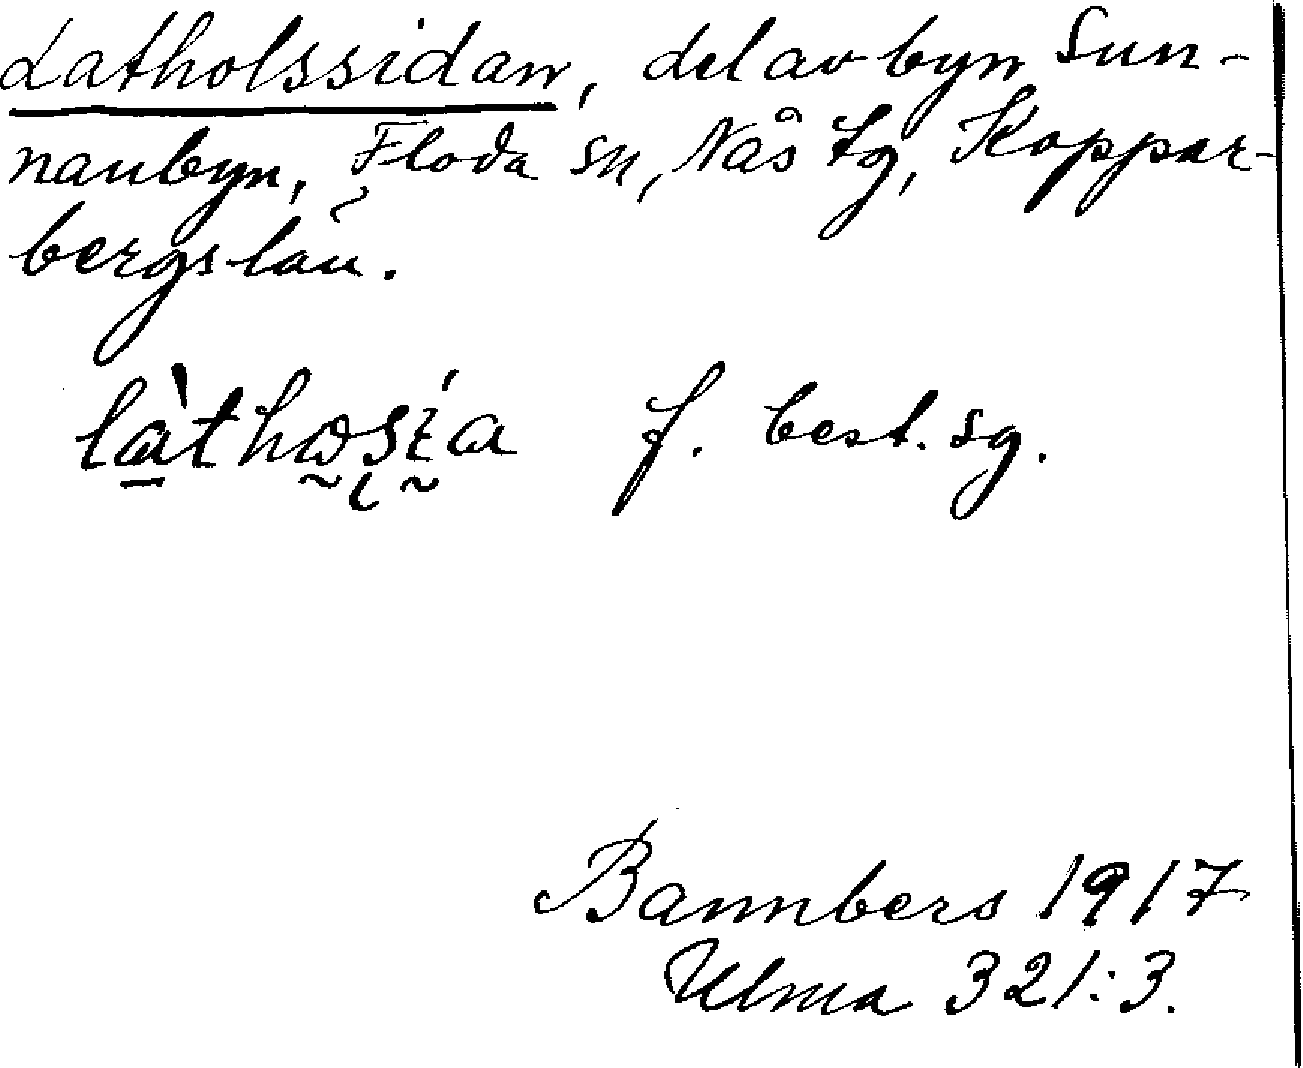 Latholssidan, del av byn Sun-
nanbyn, Floda sn, Nås tg, Koppar-
bergs län.
f. best. sg.
Bannbers 1917
Ulma 321:3.